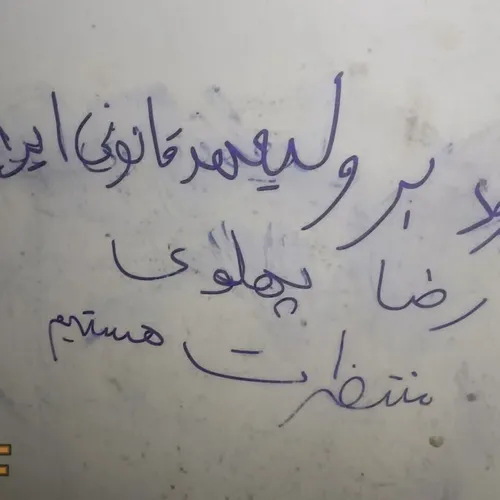 بر ولیعهد قانونی ایرا
رضا پهلوی
منتظرت هستیم